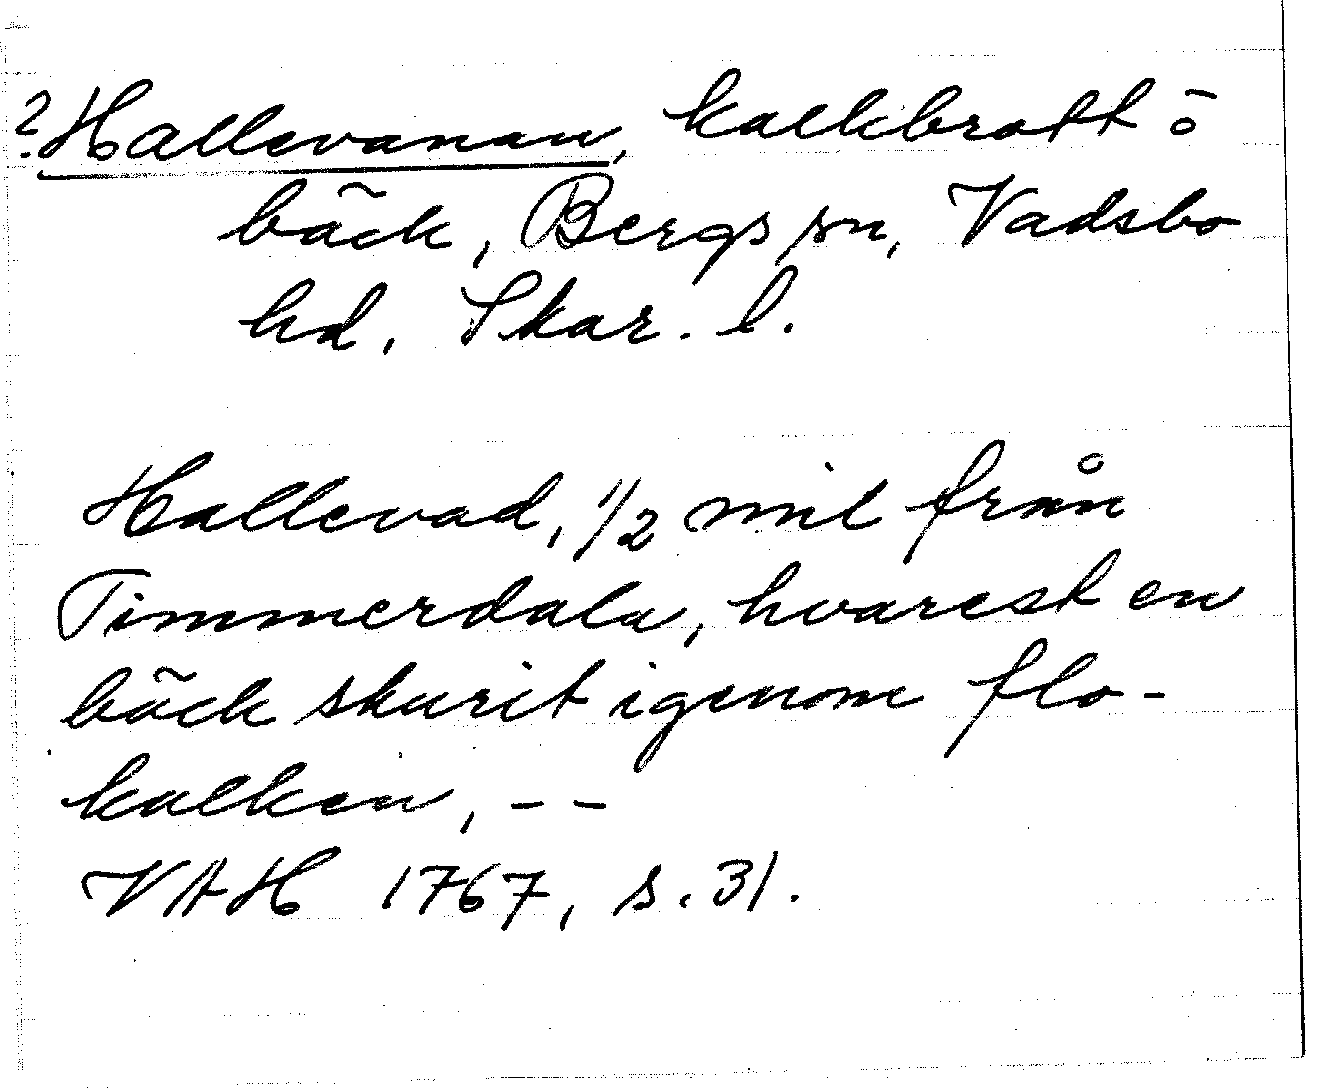 ? Hallevanan, kalkbrott ō
bäck, Bergs sn, Vadsbo
hd, Skar. l.
Hallevad, 1/2 mil från
Timmerdala, hvarest en
bäck skurit igenom flo-
kalken, - -
VAH 1767, s. 31.